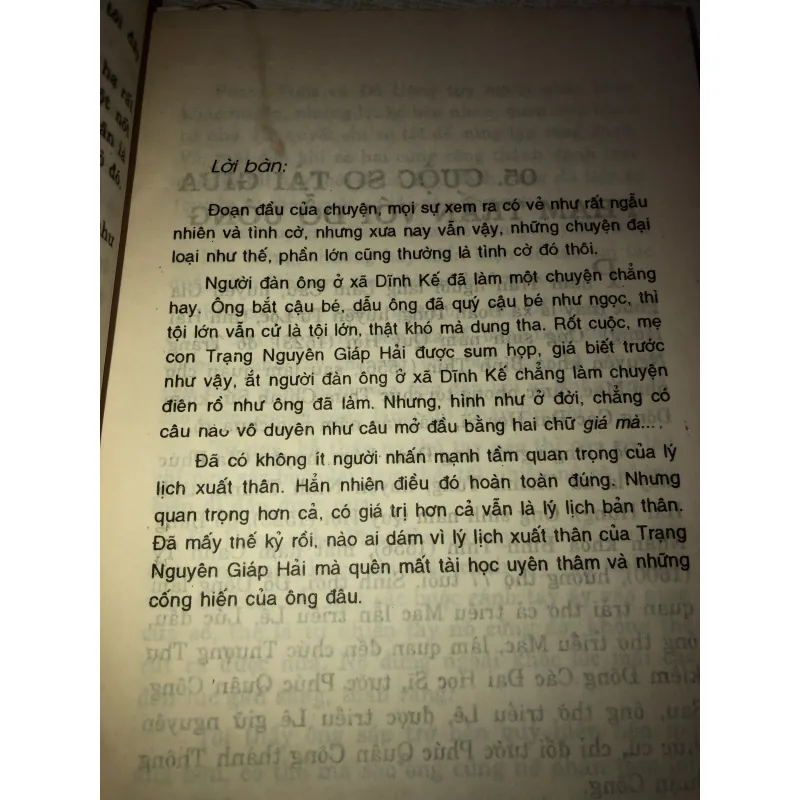 Lời bàn:
Đoạn đầu của chuyện, mọi sự xem ra có vẻ như rất ngẫu
nhiên và tình cờ, nhưng xưa nay vẫn vậy, những chuyện đại
loại như thế, phần lớn cũng thường là tình cờ đó thôi.
Người đàn ông ở xã Dĩnh Kế đã làm một chuyện chẳng
hay. Ông bắt cậu bé, dẫu ông đã quý cậu bé như ngọc, thì
tội lớn vẫn cứ là tội lớn, thật khó mà dung tha. Rốt cuộc, mẹ
con Trạng Nguyên Giáp Hải được sum họp, giá biết trước
như vậy, ắt người đàn ông ở xã Dĩnh Kế chẳng làm chuyện
điên rồ như ông đã làm. Nhưng, hình như ở đời, chẳng có
câu nào vô duyên như câu mở đầu bằng hai chữ giá mà....
Đã có không ít người nhấn mạnh tầm quan trọng của lý
lịch xuất thân. Hẳn nhiên điều đó hoàn toàn đúng. Nhưng
quan trọng hơn cả, có giá trị hơn cả vẫn là lý lịch bản thân.
Đã mấy thế kỷ rồi, nào ai dám vì lý lịch xuất thân của Trạng
Nguyên Giáp Hải mà quên mất tài học uyên thâm và những
cống hiến của ông đâu.